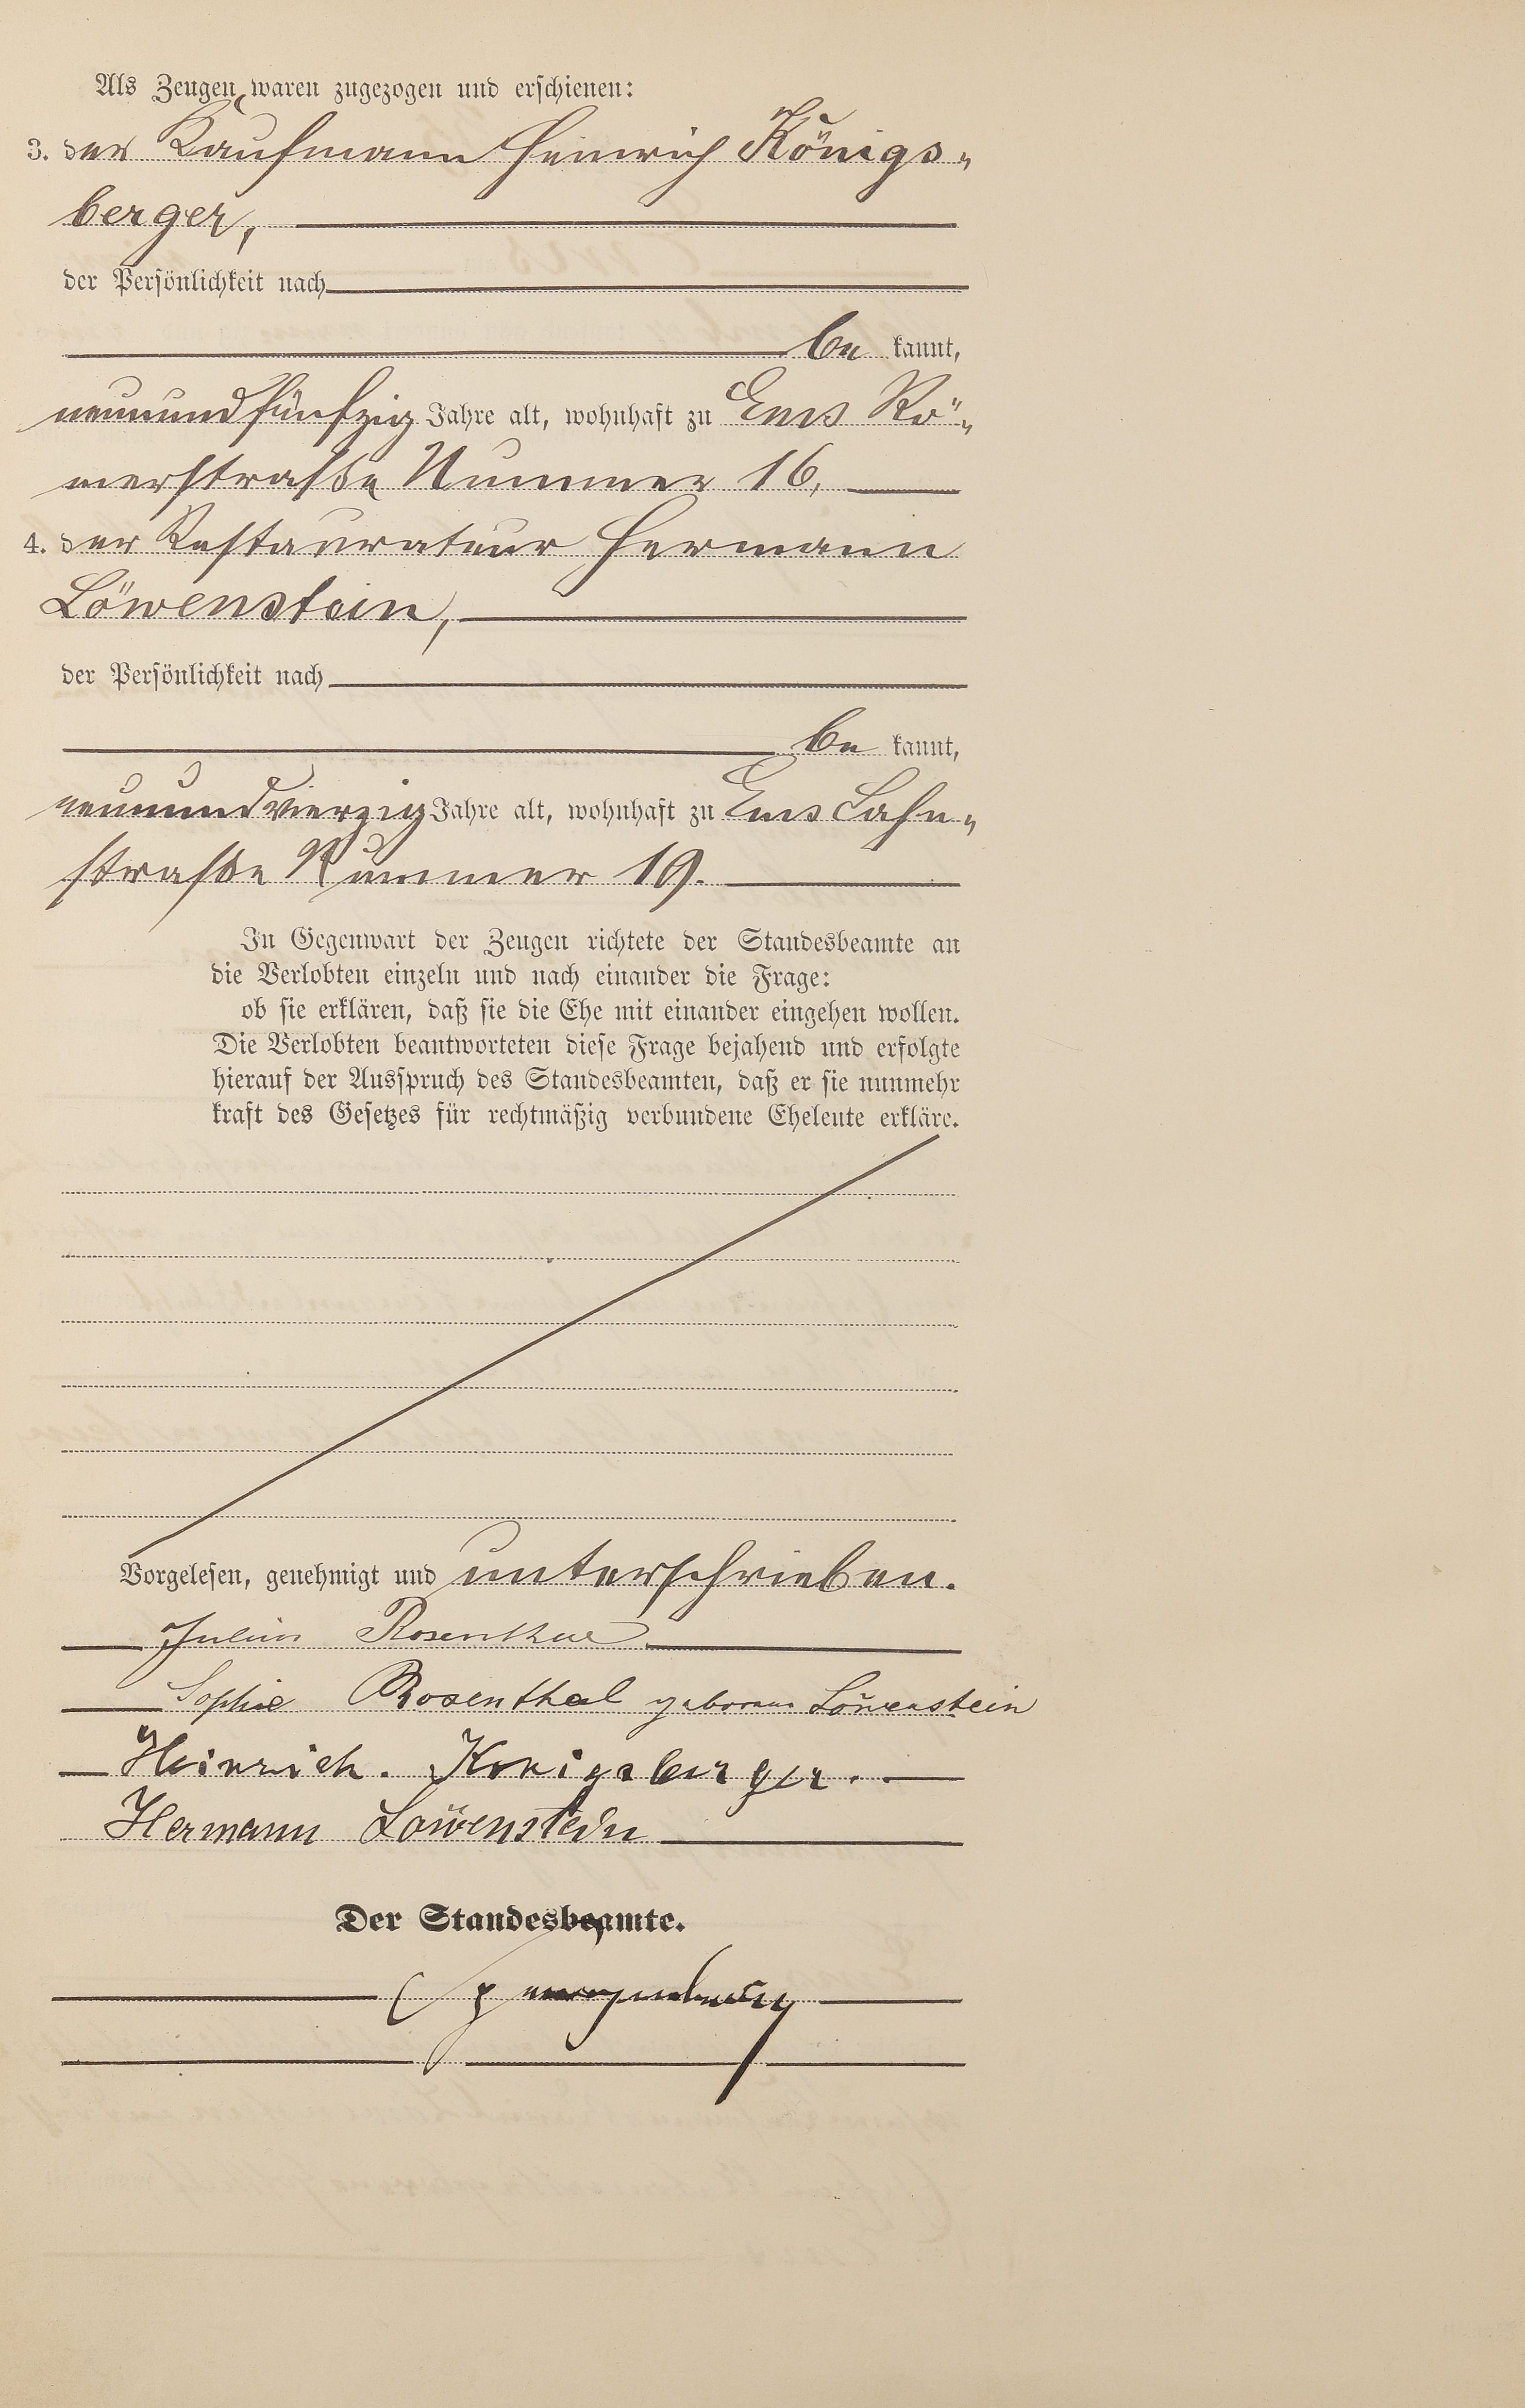 Als Zeugen waren zugezogen und erschienen:
3. der Kaufmann Heinrich Königs-
berger,
der Persönlichkeit nach
be kannt,
neunundfünfzig Jahre alt, wohnhaft zu Ems Rö-
merstraße Nummer 16,
4. der Restaurateur Hermann
Löwenstein,
der Persönlichkeit nach
be kannt,
neunundvierzig Jahre alt, wohnhaft zu Ems Lahn-
straße Nummer 19.
In Gegenwart der Zeugen richtete der Standesbeamte an
die Verlobten einzeln und nach einander die Frage:
ob sie erklären, daß sie die Ehe mit einander eingehen wollen.
Die Verlobten beantworteten diese Frage bejahend und erfolgte
hierauf der Ausspruch des Standesbeamten, daß er sie nunmehr
kraft des Gesetzes für rechtmäßig verbundene Eheleute erkläre.
Vorgelesen, genehmigt und unterschrieben.
Julius Rosenthal
Sophie Rosenthal geborene Löwenstein
Heinrich. Königsberger.
Hermann Löwenstein
Der Standesbeamte.